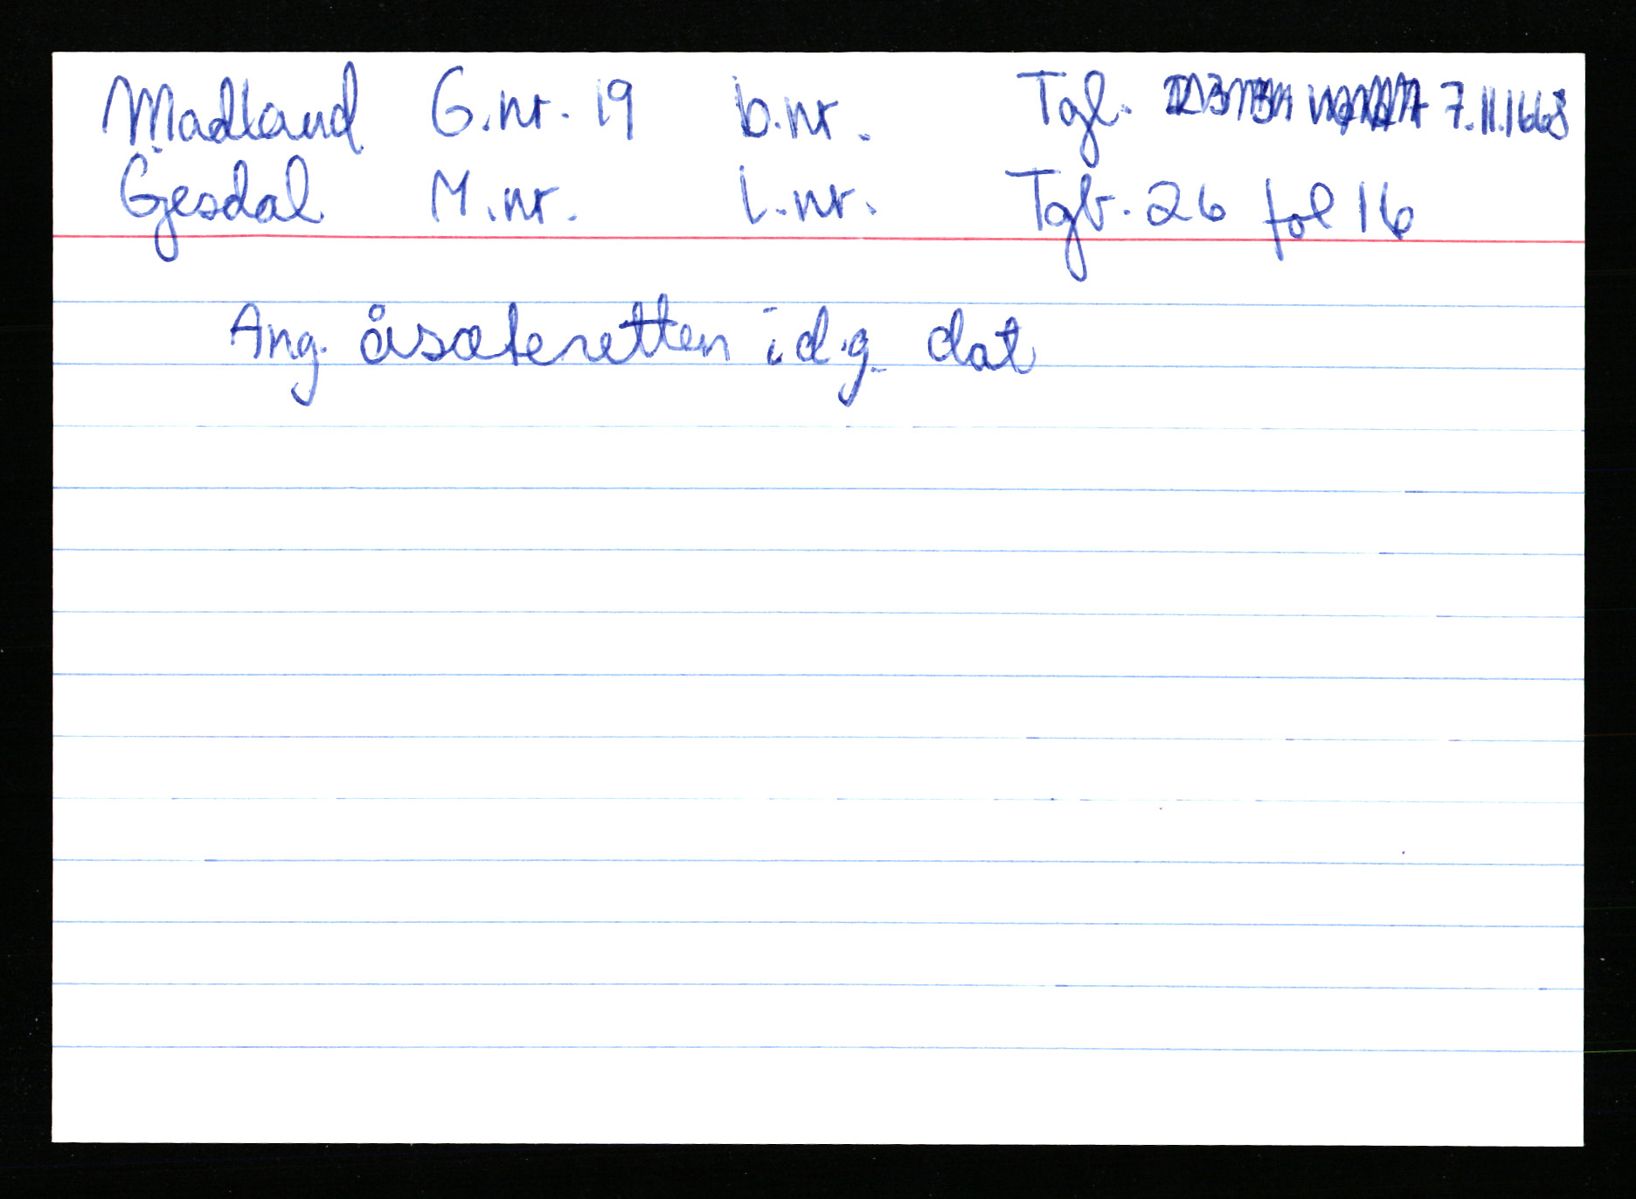 Madland G.nr. 19 b.nr. Tgl. 7.11.1668
Gjesdal M.nr. l.nr. Tgb. 26 fol 16
Ang. åsæteretten i d.g. dat